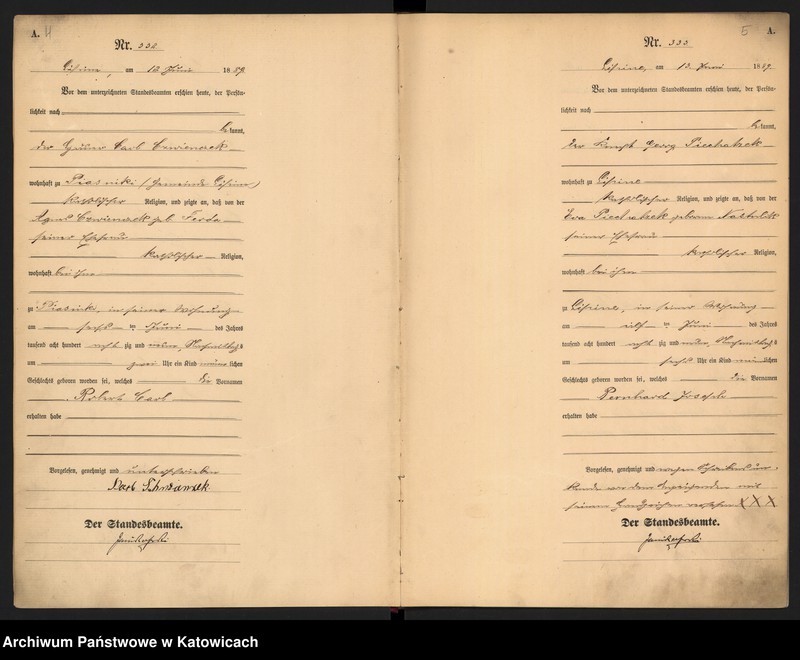 A.
Nr. 332
Lipine, am 12. Juni 1889.
Vor dem unterzeichneten Standesbeamten erschien heute, der Persön-
lichkeit nach
kannt,
der Carl
wohnhaft zu Piasniki (Gemeinde Lipine)
katholischer Religion, und zeigte an, daß von der
geb. Ferda
seiner Ehefrau
katholischer Religion,
wohnhaft bei ihm
zu Piasniki, in seiner Wohnung
am sechsten Juni des Jahres
tausend acht hundert achtzig und neun, Nachmittags
um zwei Uhr ein Kind männlichen
Geschlechts geboren worden sei, welches die Vornamen
Robert Carl
erhalten habe
Vorgelesen, genehmigt und unterschrieben
Der Standesbeamte.
A.
Nr. 333
Lipine, am 12. Juni 1889.
Vor dem unterzeichneten Standesbeamten erschien heute, der Persön-
lichkeit nach
kannt,
der Georg Piechatzek
wohnhaft zu Lipine
katholischer Religion, und zeigte an, daß von der
Eva Piechatzek geborene
seiner Ehefrau
katholischer Religion,
wohnhaft bei ihm
zu Lipine, in seiner Wohnung
am elften Juni des Jahres
tausend acht hundert achtzig und neun, Nachmittags
um sechs Uhr ein Kind männlichen
Geschlechts geboren worden sei, welches die Vornamen
Bernhard Joseph
erhalten habe
Vorgelesen, genehmigt und wegen
von dem Anzeigenden mit
seinem Handzeichen versehen XXX
Der Standesbeamte.
Archiwum Państwowe w Katowicach